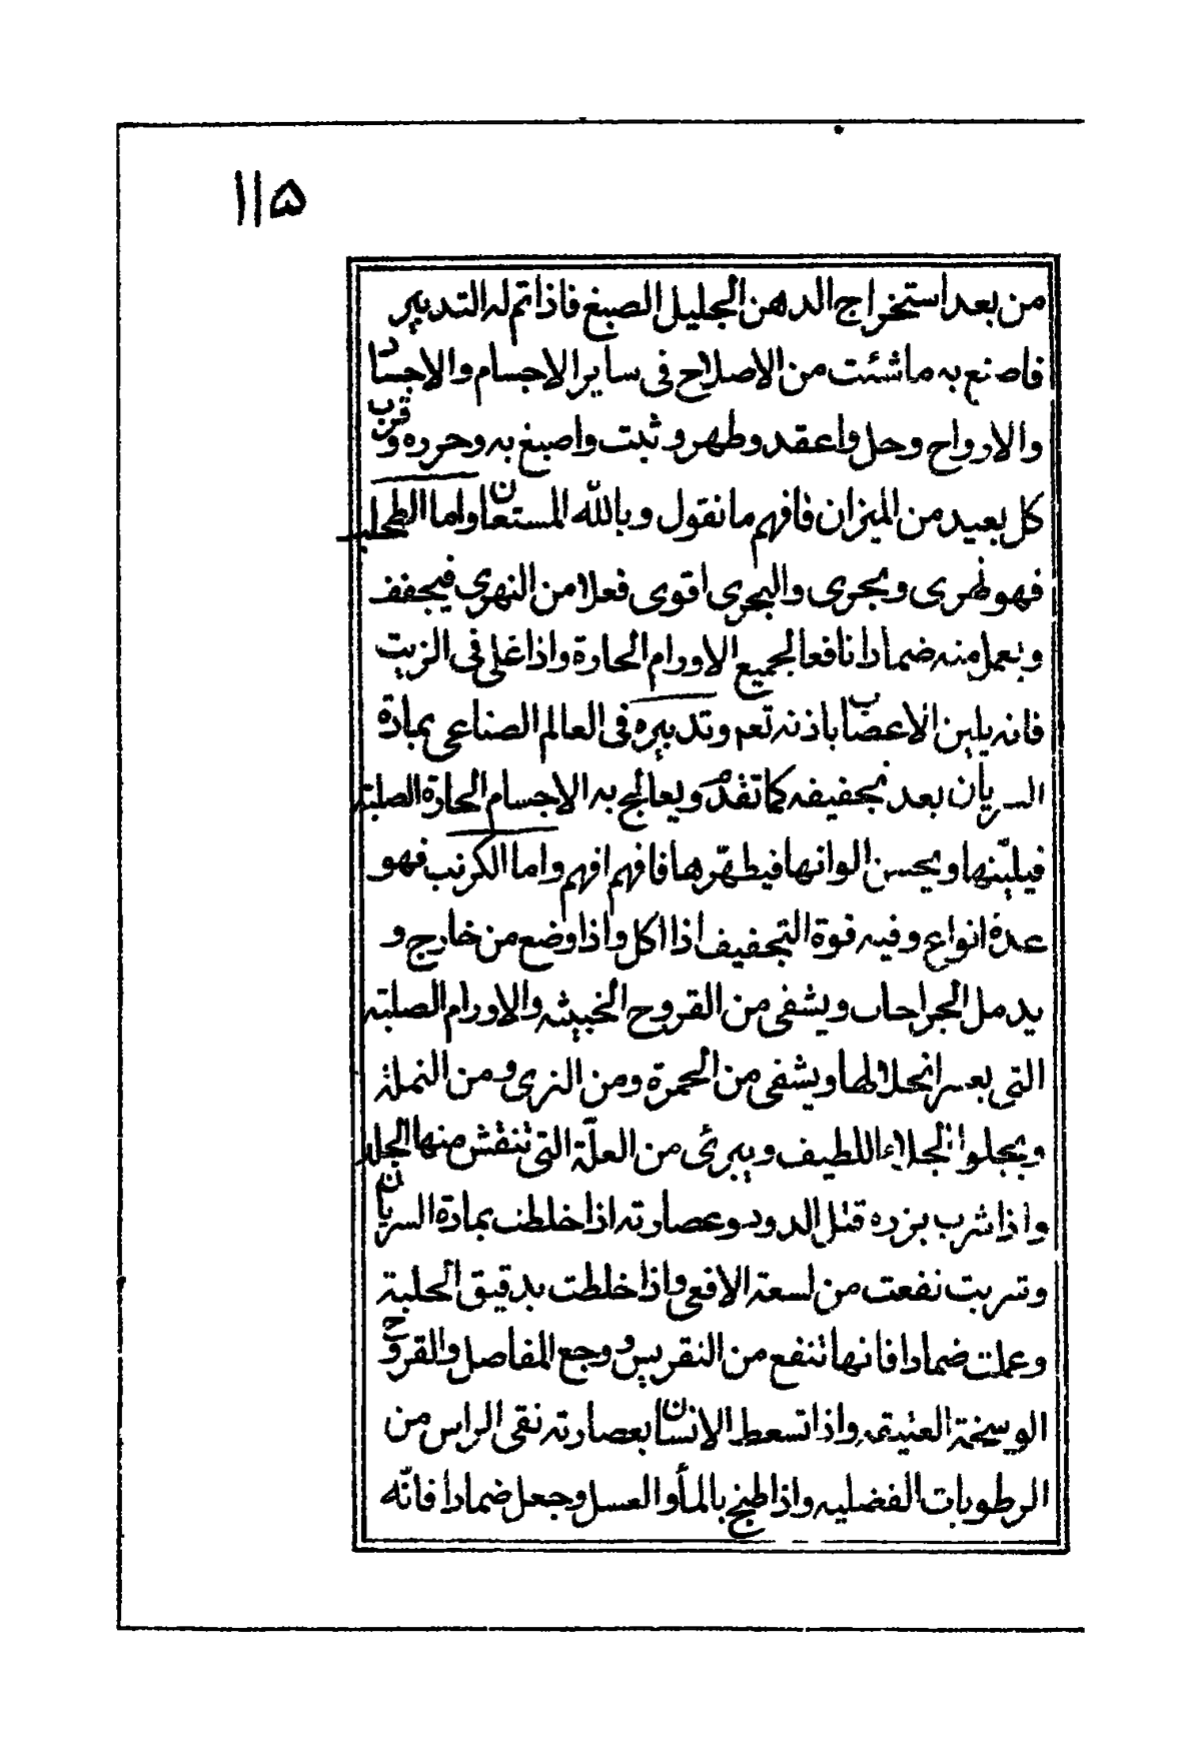 ١١۵
من بعد استخراج الدهن الجليل الصبغ فاذا تم له التدبير
فاصنع به ما شئت من الاصلاح فى ساير الاجسام والاجساد
والارواح وحل واعقد وطهر وثبت واصبغ به وحرره وقرب
كل بعيد من الميزان فافهم ما نقول وبالله المستعان واما الطحلب
فهو نهرى وبحرى والبحرى اقوى فعلا من النهرى فيجفف
ويعمل منه ضمادا نافعا لجميع الاورام الحارة واذا غلى فى الزيت
فانه يلين الاعصاب باذنه تعم وتدبيره فى العالم الصناعى بمادة
السريان بعد تجفيفه كما تقدم ويعالج به الاجسام الحارة الصلبة
فيليّنها ويحسن الوانها فيطهّرها فافهم افهم واما الكرنب فهو
عدة انواع وفيه قوة التجفيف اذا اكل واذا وضع من خارج و
يدمل الجراحات ويشفى من القروح الخبيثه والاورام الصلبة
التى يعسر انحلالها ويشفى من الحمرة ومن النرى ومن النملة
ويجلوا الجلاء اللطيف ويبرئ من العلّة التى تنقش منها الجلد
واذا شرب بزره قتل الدود وعصارته اذا خلطت بمادة السريان
وشربت نفعت من لسعة الافعى واذا خلطت بدقيق الحلبة
وعملت ضمادا فانها تنفع من النقريس ووجع المفاصل والقروح
الوسخة العتيقه واذا تسعط الانسان بعصارته نقى الراس من
الرطوبات الفضليه واذا طبخ بالمأ والعسل وجعل ضمادا فانّه